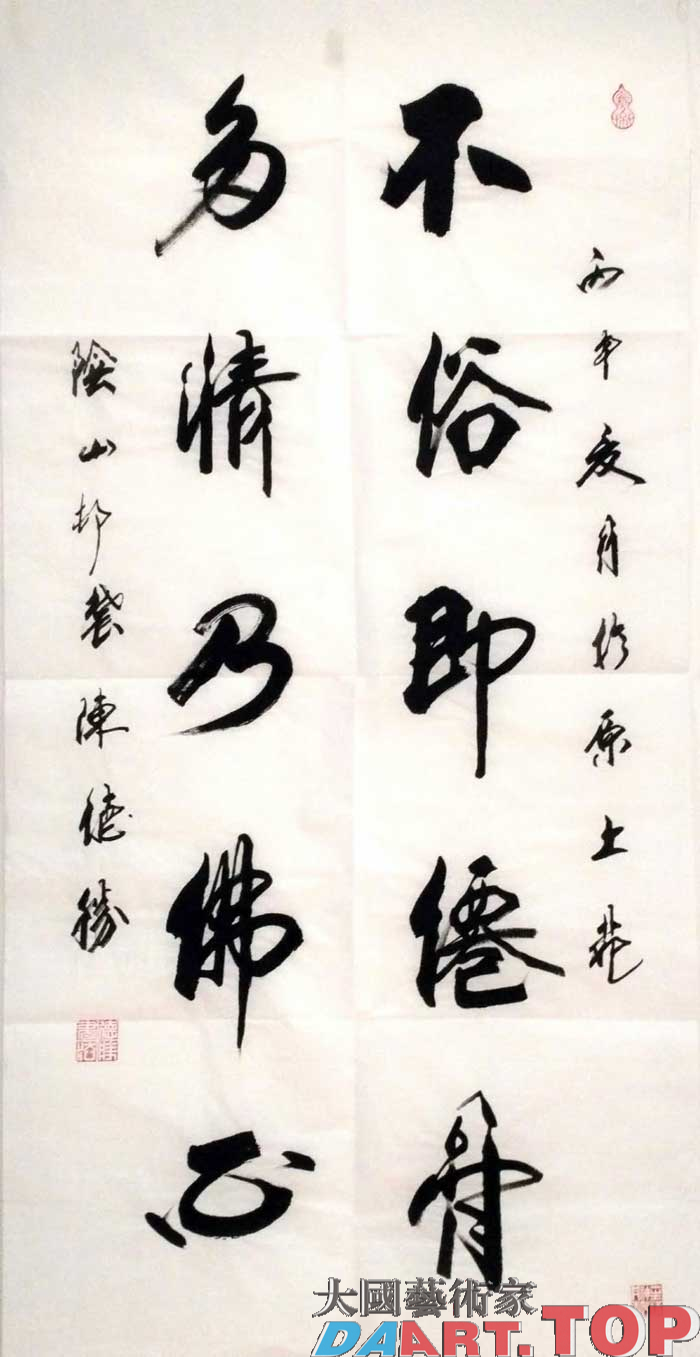 丙申夏月於原上
不俗即僊骨
多情乃佛心
險山邨農陳德勝
大國藝術家
DAART.TOP